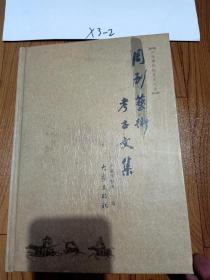 X3-2
周到藝術
考古文集
大象出版社